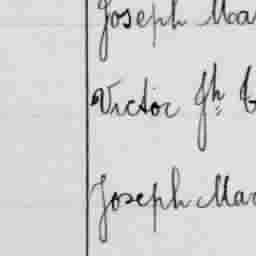 Joseph Ma
Victor Jh
Joseph Mar